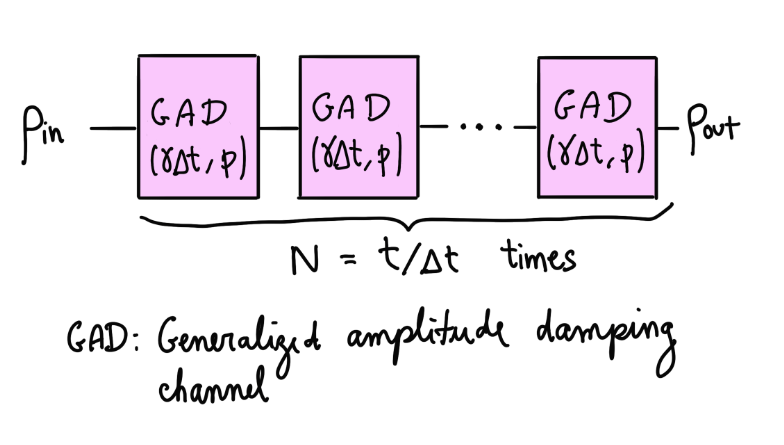 ρin GAD (γΔt, p) GAD (γΔt, p) ... GAD (γΔt, p) ρout
N = t/Δt times
GAD: Generalized amplitude damping
channel